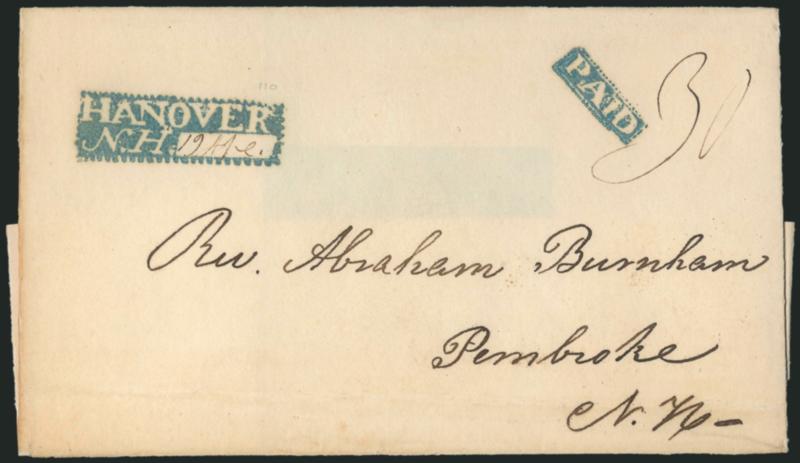 HANOVER
N.H 19 Ap.
PAID
30
Rev. Abraham Burnham
Pembroke
N. H-
110